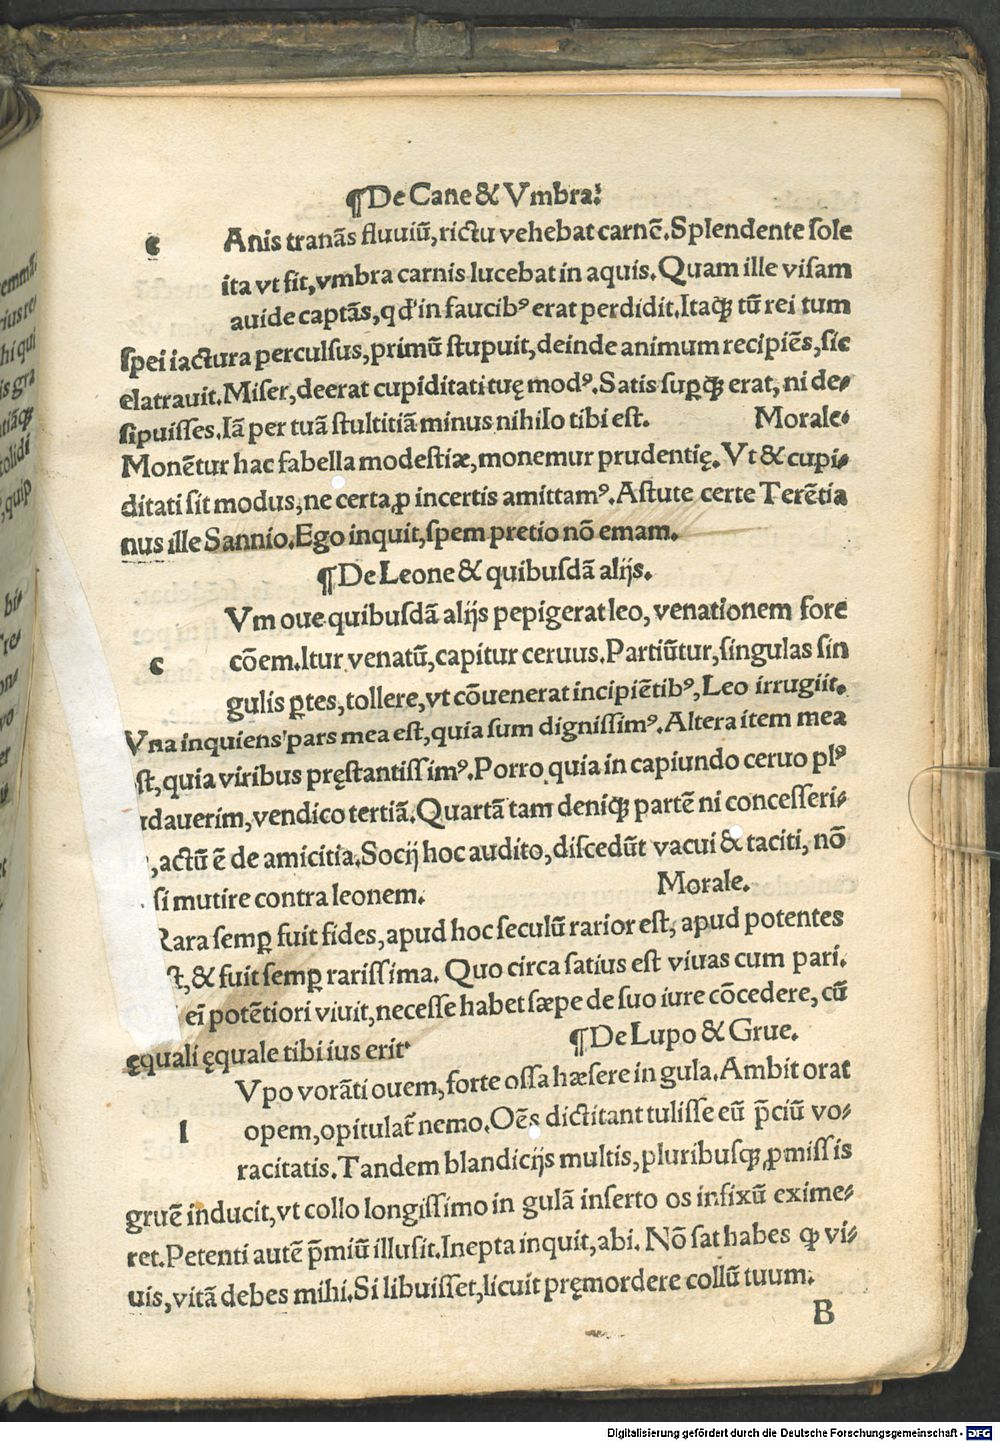 ¶De Cane & Vmbra.
c Anis tranãs fluuiũ, rictu vehebat carnẽ. Splendente sole
ita vt fit, vmbra carnis lucebat in aquis. Quam ille visam
auide captãs, qđ in faucibꝰ erat perdidit. Itaqꝫ tũ rei tum
spei iactura perculsus, primũ stupuit, deinde animum recipiẽs, sic
elatrauit. Miser, deerat cupiditati tuę modꝰ. Satis suꝑqꝫ erat, ni de⸗
sipuisses. Iã per tuã stultitiã minus nihilo tibi est. Morale⸗
Monẽtur hac fabella modestiæ, monemur prudentię. Vt & cupi⸗
ditati sit modus, ne certa ꝓ incertis amittamꝰ. Astute certe Terẽtia
nus ille Sannio. Ego inquit, spem pretio nõ emam.
¶De Leone & quibusdã alijs.
Vm oue quibusdã alijs pepigerat leo, venationem fore
c cõem. Itur venatũ, capitur ceruus. Partiũtur, singulas sin
gulis ꝑtes, tollere, vt cõuenerat incipiẽtibꝰ, Leo irrugiit.
Vna inquiens pars mea est, quia sum dignissimꝰ. Altera item mea
st, quia viribus pręstantissimꝰ. Porro quia in capiundo ceruo plꝰ
dauerim, vendico tertiã. Quartã tam deniqꝫ partẽ ni concesseri⸗
, actũ ẽ de amicitia. Socij hoc audito, discedũt vacui & taciti, nõ
si mutire contra leonem. Morale.
Rara semꝑ fuit fides, apud hoc seculũ rarior est, apud potentes
st, & fuit semꝑ rarissima. Quo circa satius est viuas cum pari.
eĩ potẽtiori viuit, necesse habet sæpe de suo iure cõcedere, cũ
ęquali ęquale tibi ius erit. ¶De Lupo & Grue.
Vpo vorãti ouem, forte ossa hæsere in gula. Ambit orat
l opem, opitulat̃ nemo. Oẽs dictitant tulisse eũ p̃ciũ vo⸗
racitatis. Tandem blandicijs multis, pluribusqꝫ ꝓmissis
gruẽ inducit, vt collo longissimo in gulã inserto os infixũ exime⸗
ret. Petenti autẽ p̃miũ illusit. Inepta inquit, abi. Nõ sat habes ꝙ vi⸗
uis, vitã debes mihi. Si libuisset, licuit pręmordere collũ tuum.
B
Digitalisierung gefördert durch die Deutsche Forschungsgemeinschaft - DFG